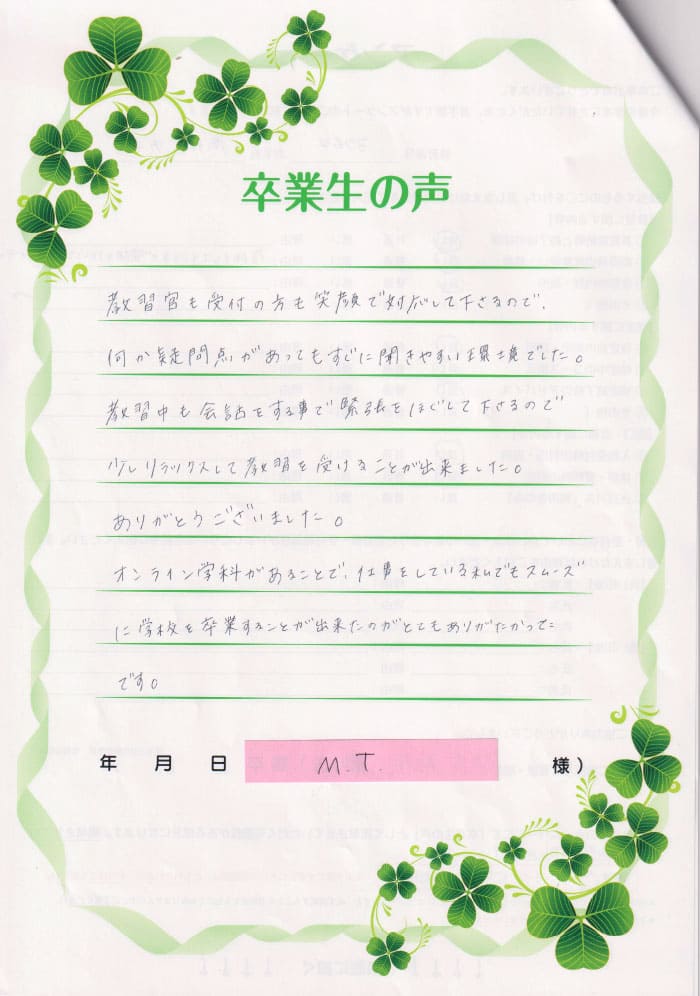 卒業生の声
教習官も受付の方も笑顔で対応して下さるので、
何か疑問点があってもすぐに聞きやすい環境でした。
教習中も会話をする事で緊張をほぐして下さるので
少しリラックスして教習を受けることが出来ました。
ありがとうございました。
オンライン学科があることで、仕事をしている私でもスムーズ
に学校を卒業することが出来たのがとてもありがたかった
です。
年 月 日 M.T. 様）